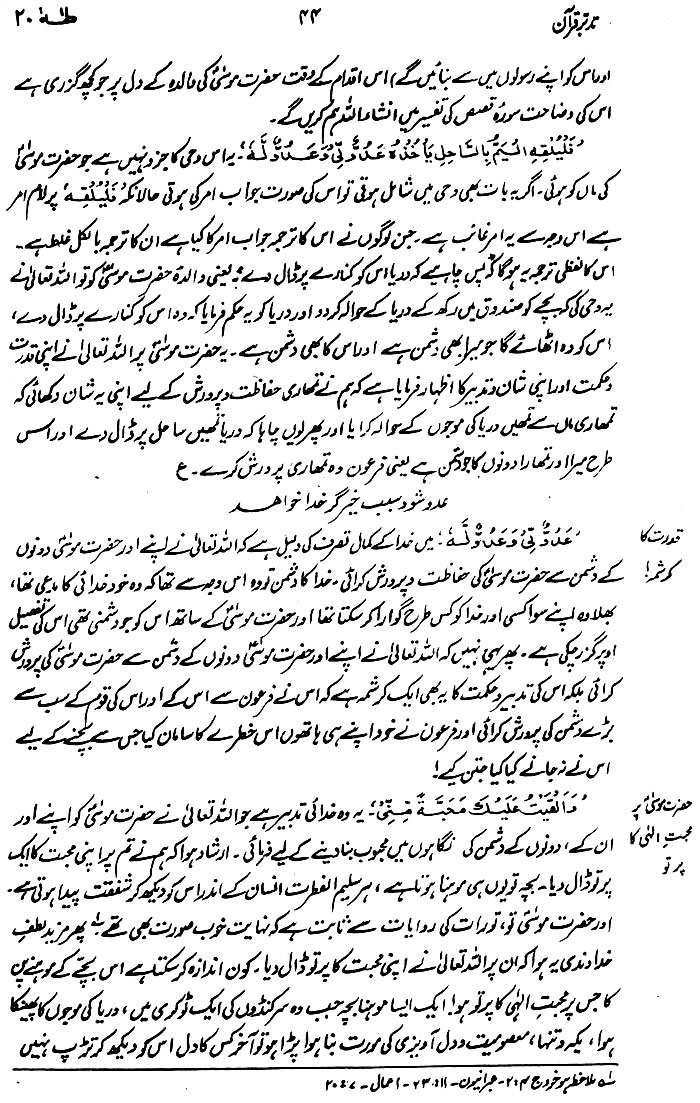 تدبر قرآن ۴۴ طٰہٰ ۲۰
اور اس کو اپنے رسولوں میں سے بنائیں گے) اس اقدام کے وقت حضرت موسیٰؑ کی والدہ کے دل پر جو کچھ گزری ہے
اس کی وضاحت سورۂ قصص کی تفسیر میں انشاء اللہ ہم کریں گے۔
’فَلْيُلْقِهِ الْيَمُّ بِالسَّاحِلِ يَأْخُذْهُ عَدُوٌّ لِّي وَعَدُوٌّ لَّهُ‘۔ یہ اس وحی کا جزو نہیں ہے جو حضرت موسیٰؑ
کی ماں کو ہوئی۔ اگر یہ بات بھی وحی میں شامل ہوتی تو اس کی صورت جواب امر کی ہوتی حالانکہ ’فَلْيُلْقِهِ‘ پر لام امر
ہے اس وجہ سے یہ امر غائب ہے۔ جن لوگوں نے اس کا ترجمہ جواب امر کا کیا ہے ان کا ترجمہ بالکل غلط ہے۔
اس کا لفظی ترجمہ یہ ہو گا کہ پس چاہیے کہ دریا اس کو کنارے پر ڈال دے، یعنی والدۂ حضرت موسیٰؑ کو تو اللہ تعالیٰ نے
یہ وحی کی کہ بچے کو صندوق میں رکھ کے دریا کے حوالہ کر دو اور دریا کو یہ حکم فرمایا کہ وہ اس کو کنارے پر ڈال دے،
اس کو وہ اٹھائے گا جو میرا بھی دشمن ہے اور اس کا بھی دشمن ہے۔ یہ حضرت موسیٰؑ پر اللہ تعالیٰ نے اپنی قدرت
و حکمت اور اپنی شان و تدبیر کا اظہار فرمایا ہے کہ ہم نے تمھاری حفاظت و پرورش کے لیے اپنی یہ شان دکھائی کہ
تمھاری ماں سے تمھیں دریا کی موجوں کے حوالہ کرایا اور پھر یوں چاہا کہ دریا تمھیں ساحل پر ڈال دے اور اس
طرح میرا اور تمھارا دونوں کا جو دشمن ہے یعنی فرعون وہ تمھاری پرورش کرے۔ ع
عدو شود سبب خیر گر خدا خواہد
قدرت کا کرشمہ!
’عَدُوٌّ لِّي وَعَدُوٌّ لَّهُ‘۔ میں خدا کے کمال تصرف کی دلیل ہے کہ اللہ تعالیٰ نے اپنے اور حضرت موسیٰؑ دونوں
کے دشمن سے حضرت موسیٰؑ کی حفاظت و پرورش کرائی۔ خدا کا دشمن تو وہ اس وجہ سے تھا کہ وہ خود خدائی کا مدعی تھا،
بھلا وہ اپنے سوا کسی اور خدا کو کس طرح گوارا کر سکتا تھا اور حضرت موسیٰؑ کے ساتھ اس کو جو دشمنی تھی اس کی تفصیل
اوپر گزر چکی ہے۔ پھر یہی نہیں کہ اللہ تعالیٰ نے اپنے اور حضرت موسیٰؑ دونوں کے دشمن سے حضرت موسیٰؑ کی پرورش
کرائی بلکہ اس کی تدبیر و حکمت کا یہ بھی ایک کرشمہ ہے کہ اس نے فرعون سے اس کے اور اس کی قوم کے سب سے
بڑے دشمن کی پرورش کرائی اور فرعون نے خود اپنے ہی ہاتھوں اس خطرے کا سامان کیا جس سے بچنے کے لیے
اس نے نہ جانے کیا کیا جتن کیے!
حضرت موسیٰؑ پر
محبتِ الٰہی کا
پرتو
’وَأَلْقَيْتُ عَلَيْكَ مَحَبَّةً مِّنِّي‘۔ یہ وہ خدائی تدبیر ہے جو اللہ تعالیٰ نے حضرت موسیٰؑ کو اپنے اور
ان کے، دونوں کے دشمن کی نگاہوں میں محبوب بنا دینے کے لیے فرمائی۔ ارشاد ہوا کہ ہم نے تم پر اپنی محبت کا ایک
پرتو ڈال دیا۔ بچہ تو یوں ہی موہنا ہوتا ہے، ہر سلیم الفطرت انسان کے اندر اس کو دیکھ کر شفقت پیدا ہوتی ہے۔
اور حضرت موسیٰؑ تو، تورات کی روایات سے ثابت ہے کہ نہایت خوب صورت بھی تھے۱؎ پھر مزید لطفِ
خداوندی یہ ہوا کہ ان پر اللہ تعالیٰ نے اپنی محبت کا پرتو ڈال دیا۔ کون اندازہ کر سکتا ہے اس بچے کے موہنے پن
کا جس پر محبتِ الٰہی کا پرتو ہو! ایک ایسا موہنا بچہ جب وہ سرکنڈوں کی ایک ٹوکری میں، دریا کی موجوں کا پھینکا
ہوا، یکہ و تنہا، معصومیت و دل آویزی کی مورت بنا ہوا پڑا ہو تو آخر کس کا دل اس کو دیکھ کر تڑپ نہیں
۱؎ ملاحظہ ہو خروج ۲:۲۔ عبرانیوں۔ ۲۳:۱۱۔ اعمال۔ ۲۰:۷